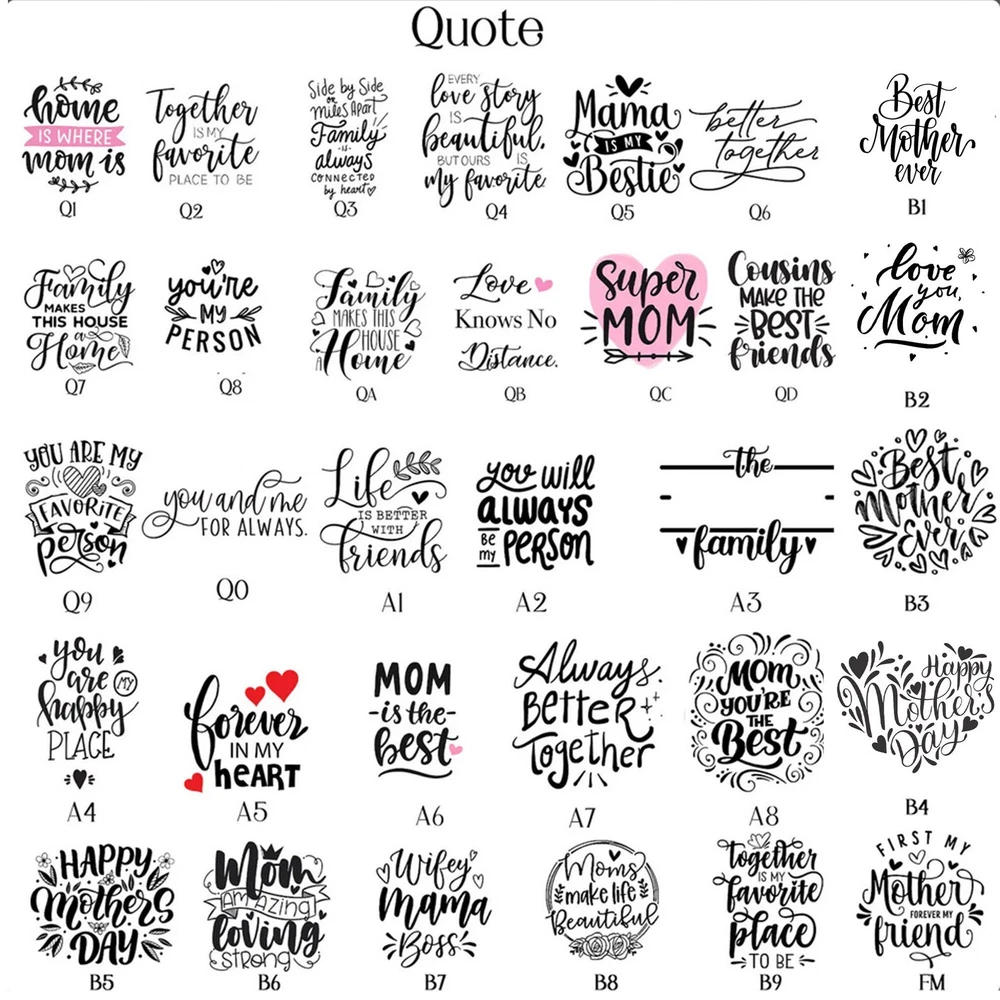 Quote
home
IS WHERE
mom is
Q1
Together
IS MY
favorite
PLACE TO BE
Q2
Side by Side
or
Miles Apart
Family
is
always
CONNECTED
by heart
Q3
EVERY
love story
IS
beautiful,
BUT OURS IS
my favorite
Q4
Mama
IS MY
Bestie
Q5
better
together
Q6
Best
Mother
ever
B1
Family
MAKES
THIS HOUSE
a
Home
Q7
you're
MY
PERSON
Q8
Family
MAKES THIS
HOUSE
A
Home
QA
Love
Knows No
Distance.
QB
Super
MOM
QC
Cousins
MAKE THE
BEST
friends
QD
love
you,
Mom.
B2
YOU ARE MY
FAVORITE
person
Q9
you and me
FOR ALWAYS.
Q0
Life
IS BETTER
WITH
friends
A1
you will
always
BE
my PERSON
A2
the
family
A3
Best
Mother
Ever
B3
you
are MY
happy
PLACE
A4
forever
IN MY
heART
A5
MOM
-is the-
best
A6
Always
Better
Together
A7
Mom
YOU'RE
THE
Best
A8
Happy
Mother's
Day
B4
HAPPY
Mother's
DAY
B5
Mom
AMAZING
loving
STRONG
B6
Wifey
Mama
Boss
B7
Moms
make life
Beautiful
B8
together
IS MY
favorite
place
TO BE
B9
FIRST MY
Mother
FOREVER MY
friend
FM